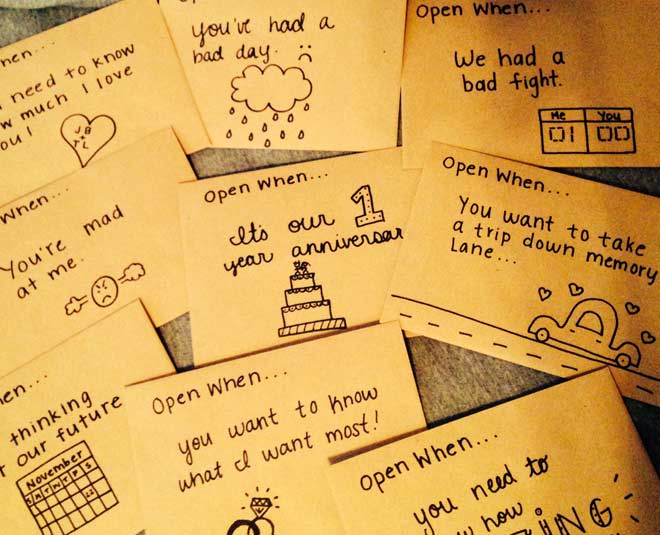 need to know
much I love
JB
+
TL
you've had a
bad day.
Open When...
We had a
bad fight.
Me You
01 00
When...
You're mad
at me.
Open When...
It's our 1
year anniversary
Open When...
You want to take
a trip down memory
Lane...
thinking
our future
November
S M T W T F S
22
Open When...
you want to know
what I want most!
Open When...
you need to
how